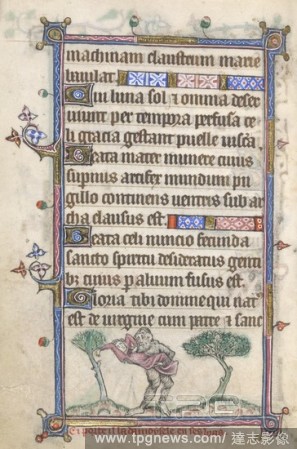 machinam claustrum marie
baiulat.
Cui luna sol & omnia deser
uiunt per tempora perfusa ce
li gracia gestant puelle uisca.
Beata mater munere cuius
supernus artifex mundum pu
gillo continens uentris sub ar
cha clausus est.
Beata celi nuncio fecunda
sancto spiritu desideratus genti
bz cuius p aluum fusus est.
Gloria tibi domine qui nat
est de uirgine cum patre & sanc
www.tpgnews.com / 達志影像